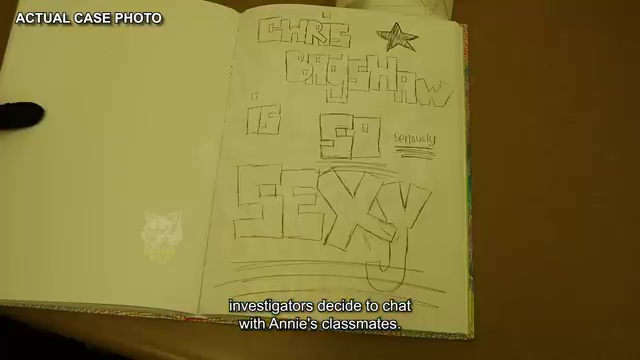 ACTUAL CASE PHOTO
CHRiS
BAgSHAW
iS SO seriously
SEXy
investigators decide to chat
with Annie's classmates.